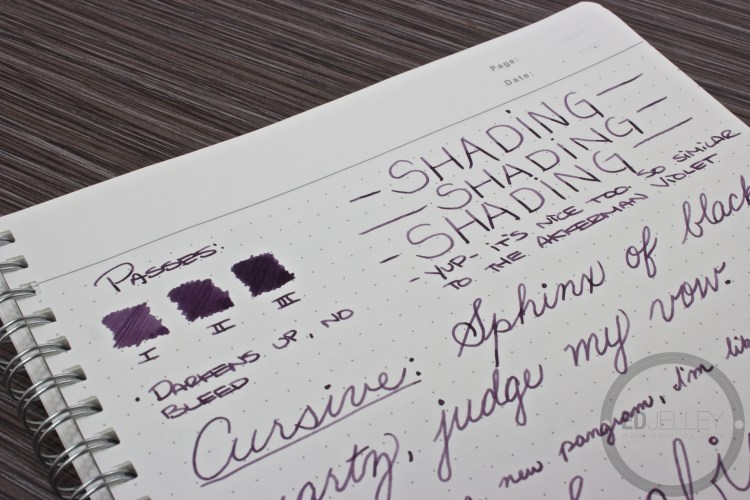 Page:
Date:
SHADING
SHADING
SHADING
- YUP - IT'S NICE TOO. SO SIMILAR
TO THE AKKERMAN VIOLET
PASSES:
I II III
· DARKENS UP, NO
BLEED
Cursive: Sphinx of black
judge my vow.
new pangram, I'm
ED JELLEY